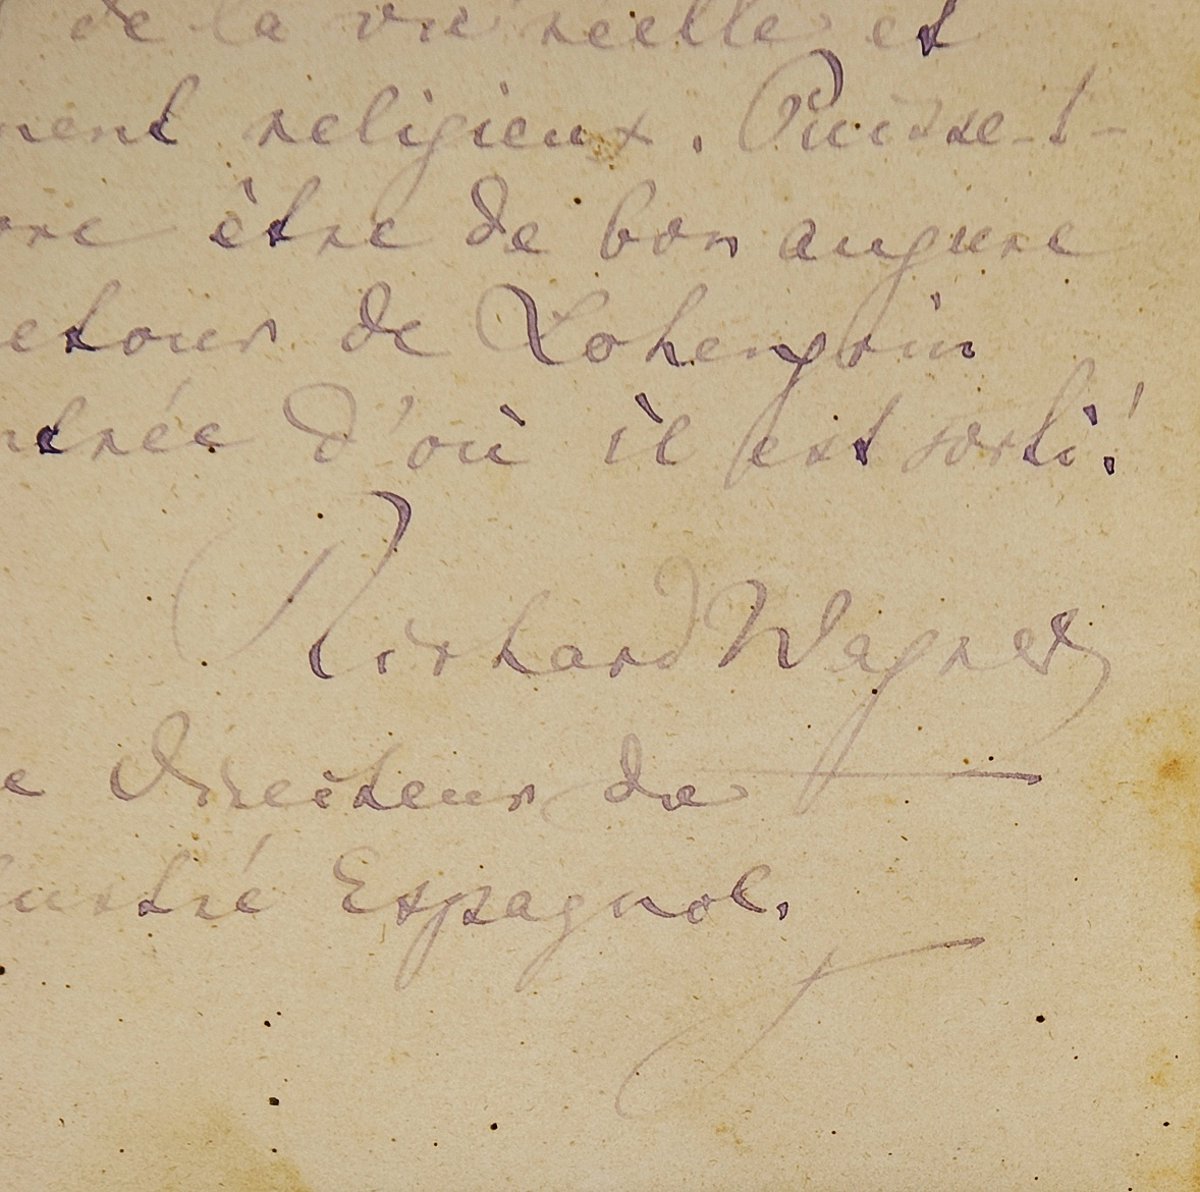 de la vie réelle et
ment religieux. Puisse-t-
ore être de bon augure
retour de Lohengrin
ntrée d'où il est sorti!
Richard Wagner
e directeur de
lustré Espagnol.